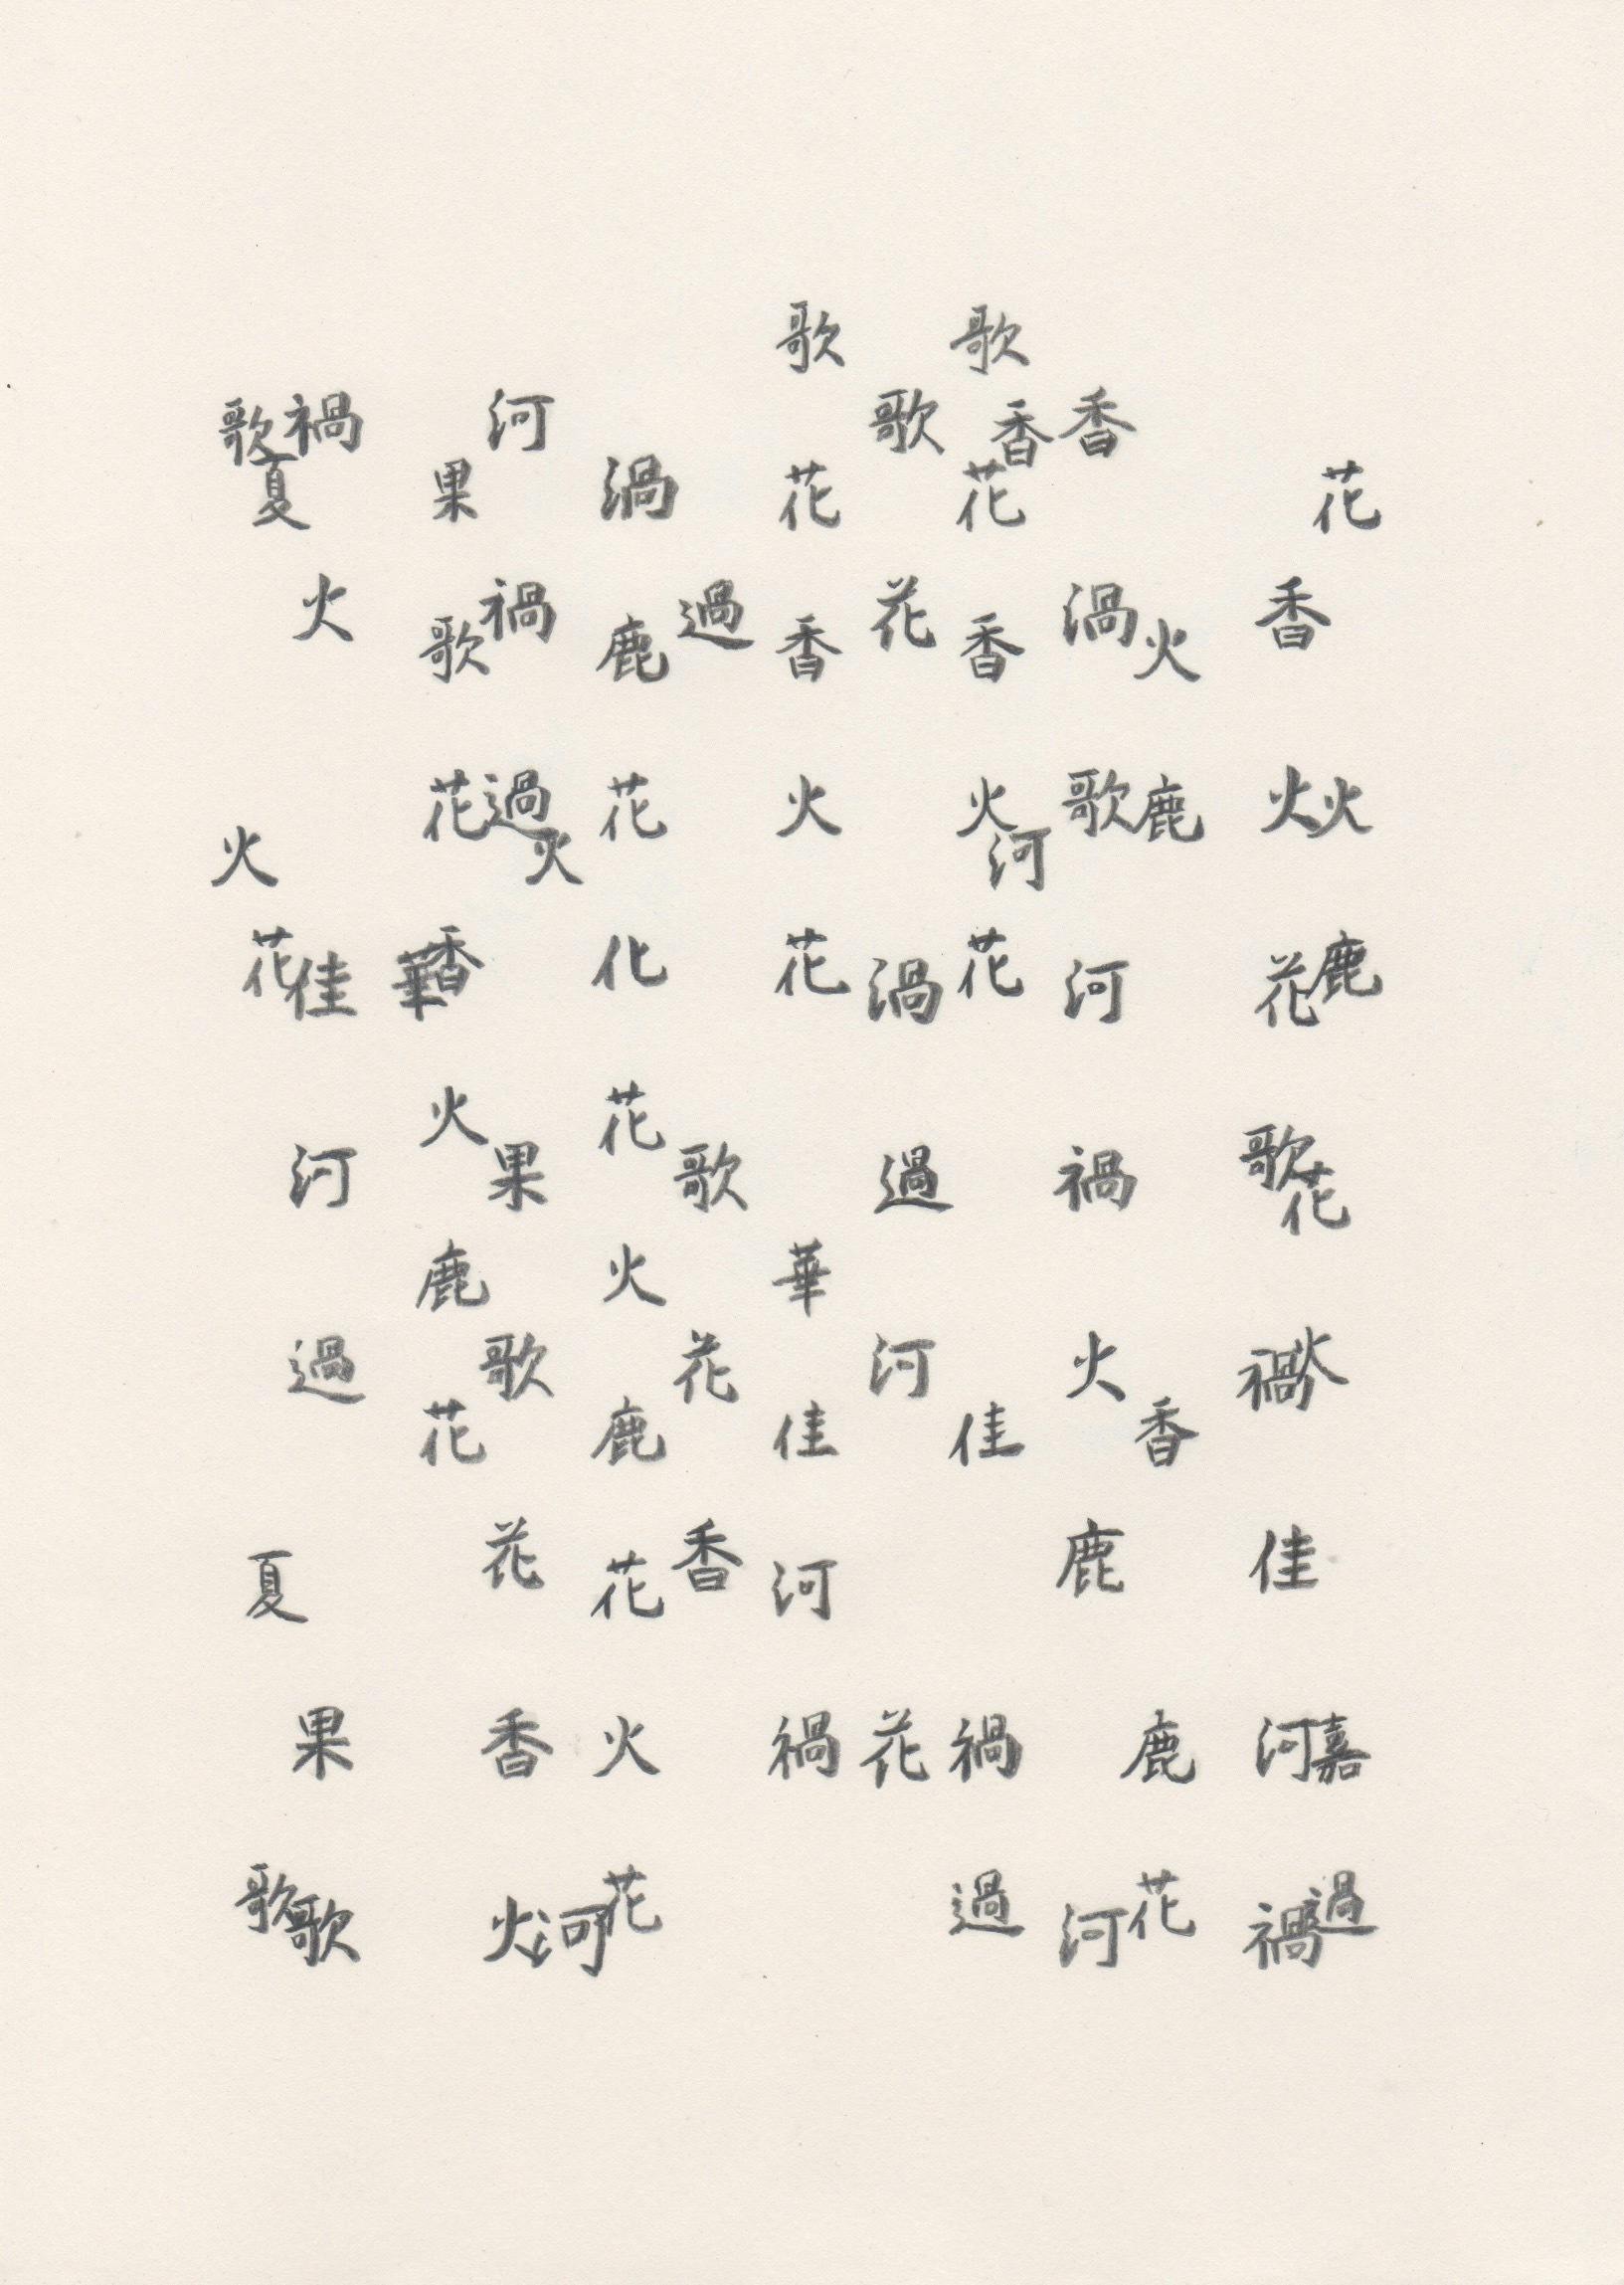 歌 歌
歌 禍 河 歌 香 香
夏 果 渦 花 花 花
火 禍 過 花 渦 香
歌 鹿 香 香 火
花 過 花 火 火 歌 鹿 火 火
火 火 河
花 佳 華 香 化 花 渦 花 河 花 鹿
火 花
河 果 歌 過 禍 歌 花
鹿 火 華
過 歌 花 河 火 禍 火
花 鹿 佳 佳 香
花 香 鹿 佳
夏 花 河
果 香 火 禍 花 禍 鹿 河 嘉
歌 花 過 花 過
歌 火 河 河 禍